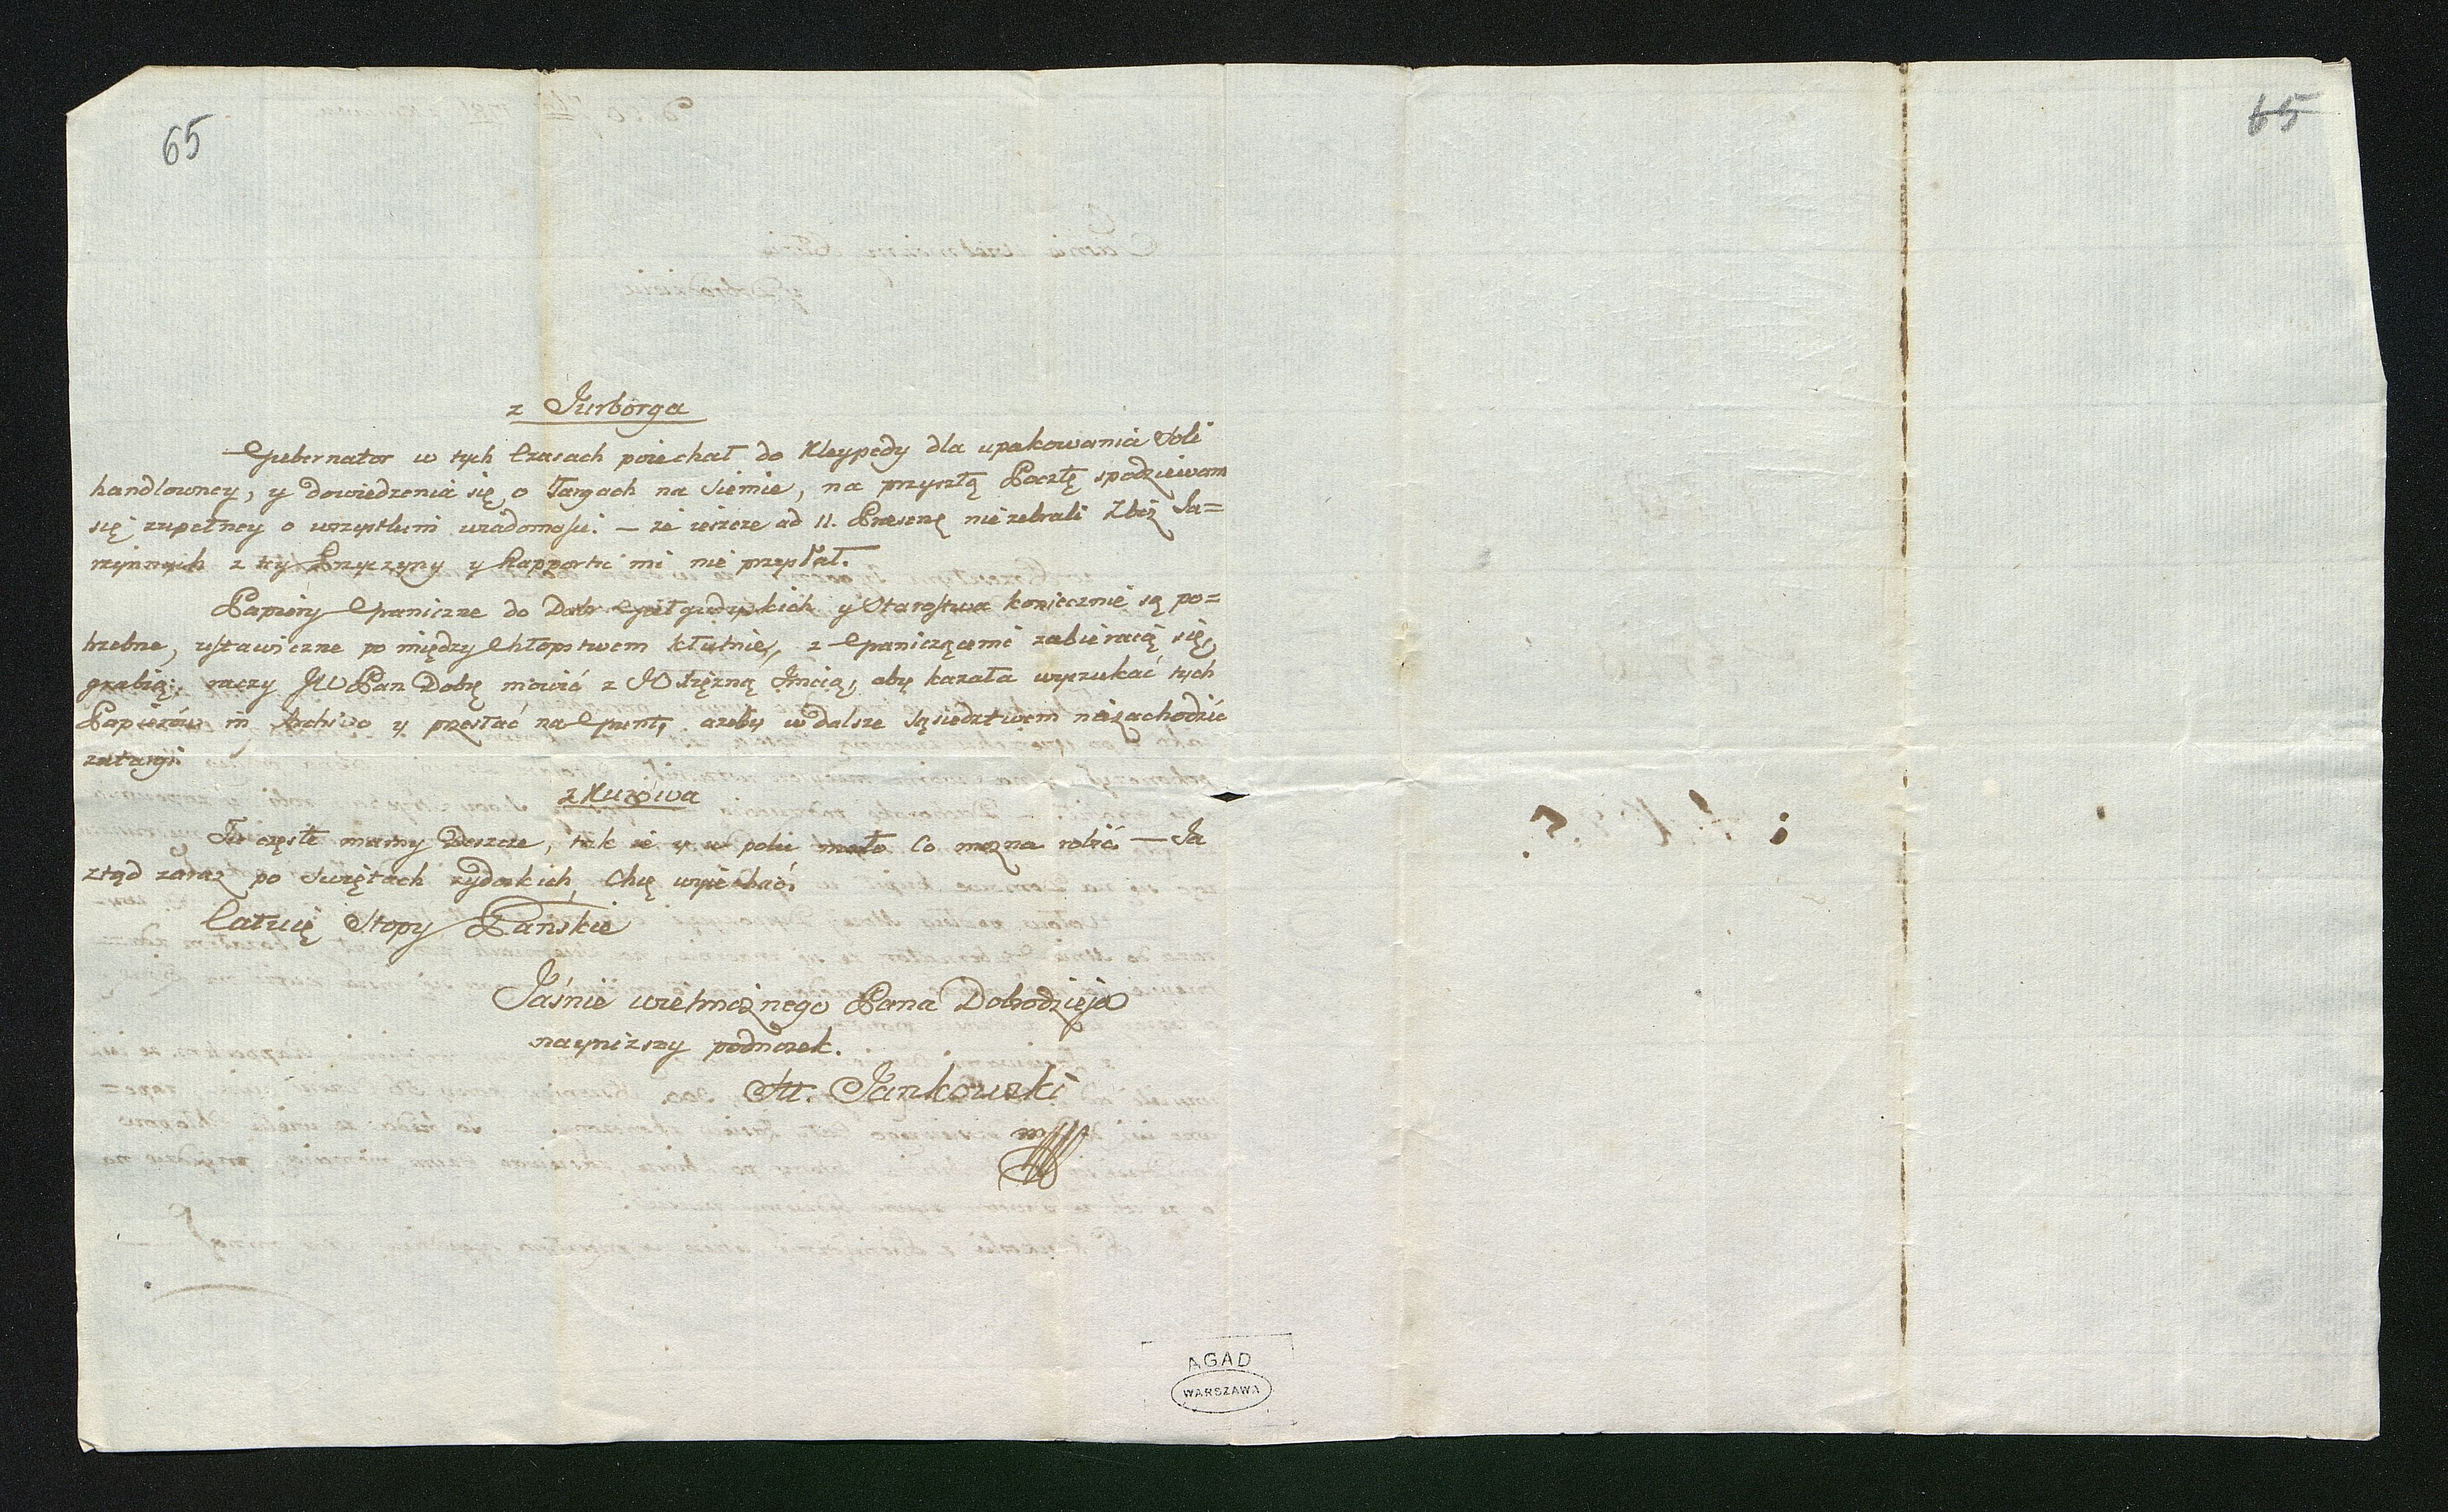 65
65
z Jurborga
Gubernator w tych Czasach poiechał do Kleypedy dla upakowania Soli
handlowney, y dowiedzenia się o Targach na Siemie, na przyszłą Pocztę spodziewam
się zupełney o wszystkim wiadomości. — że ieszcze ad 11. Praesens nie zebrali Zboż Ja=
rzynnych z tey Przyczyny y Rapportu mi nie przysłał.
Papiery Graniczne do Dobr Giełgudyszkich y Starostwa koniecznie są po=
trzebne, ustawiczne po między Chłopstwem kłutnie, z Graniczącemi zabieraią się,
grabią; raczy JW Pan Dobr mowić z JO Xiężną Jmcią, aby kazała wyszukać tych
Papierów in Archivo y przesłać na Grunt, azeby w dalsze Sąsiedztwem nie zachodzić
zatargi
z Kurowa
Tu częste mamy Deszcze, tak że y w polu mało Co mozna robić — Ja
ztąd zaraz po Swiętach zydoskich, Chcę wyiechać.
Całuię Stopy Pańskie
Jaśnie wielmożnego Pana Dobrodzieja
naynizszy podnozek.
Jankowski
mp
AGAD
WARSZAWA